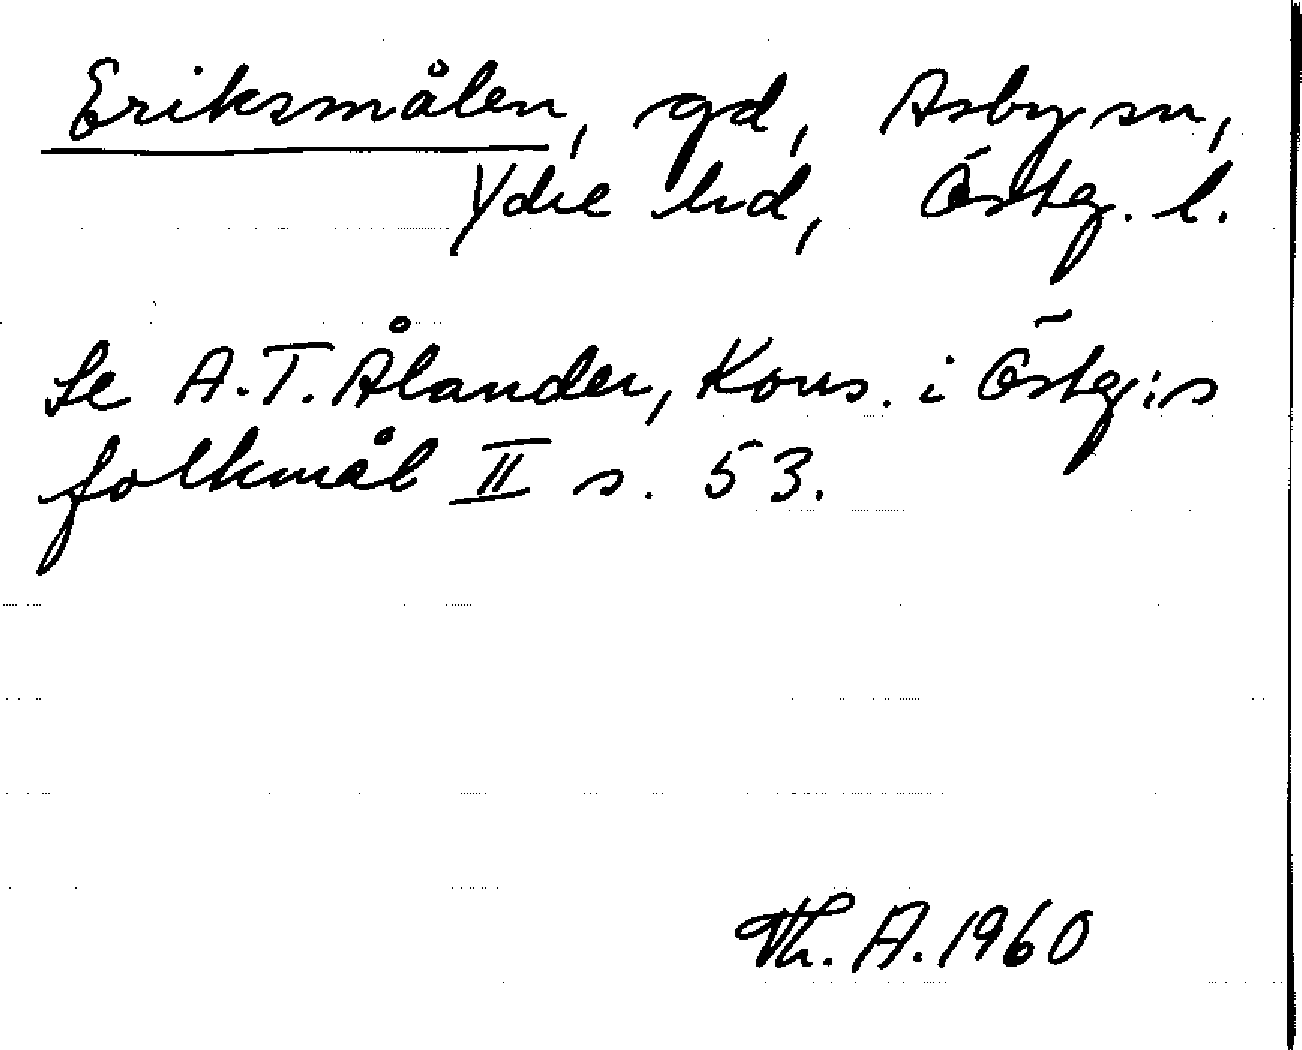 Eriksmålen, gd, Asby sn,
Ydre hd, Östg. l.
Se A.T. Ålander, Kons. i Östg:s
folkmål II s. 53.
Th. A. 1960